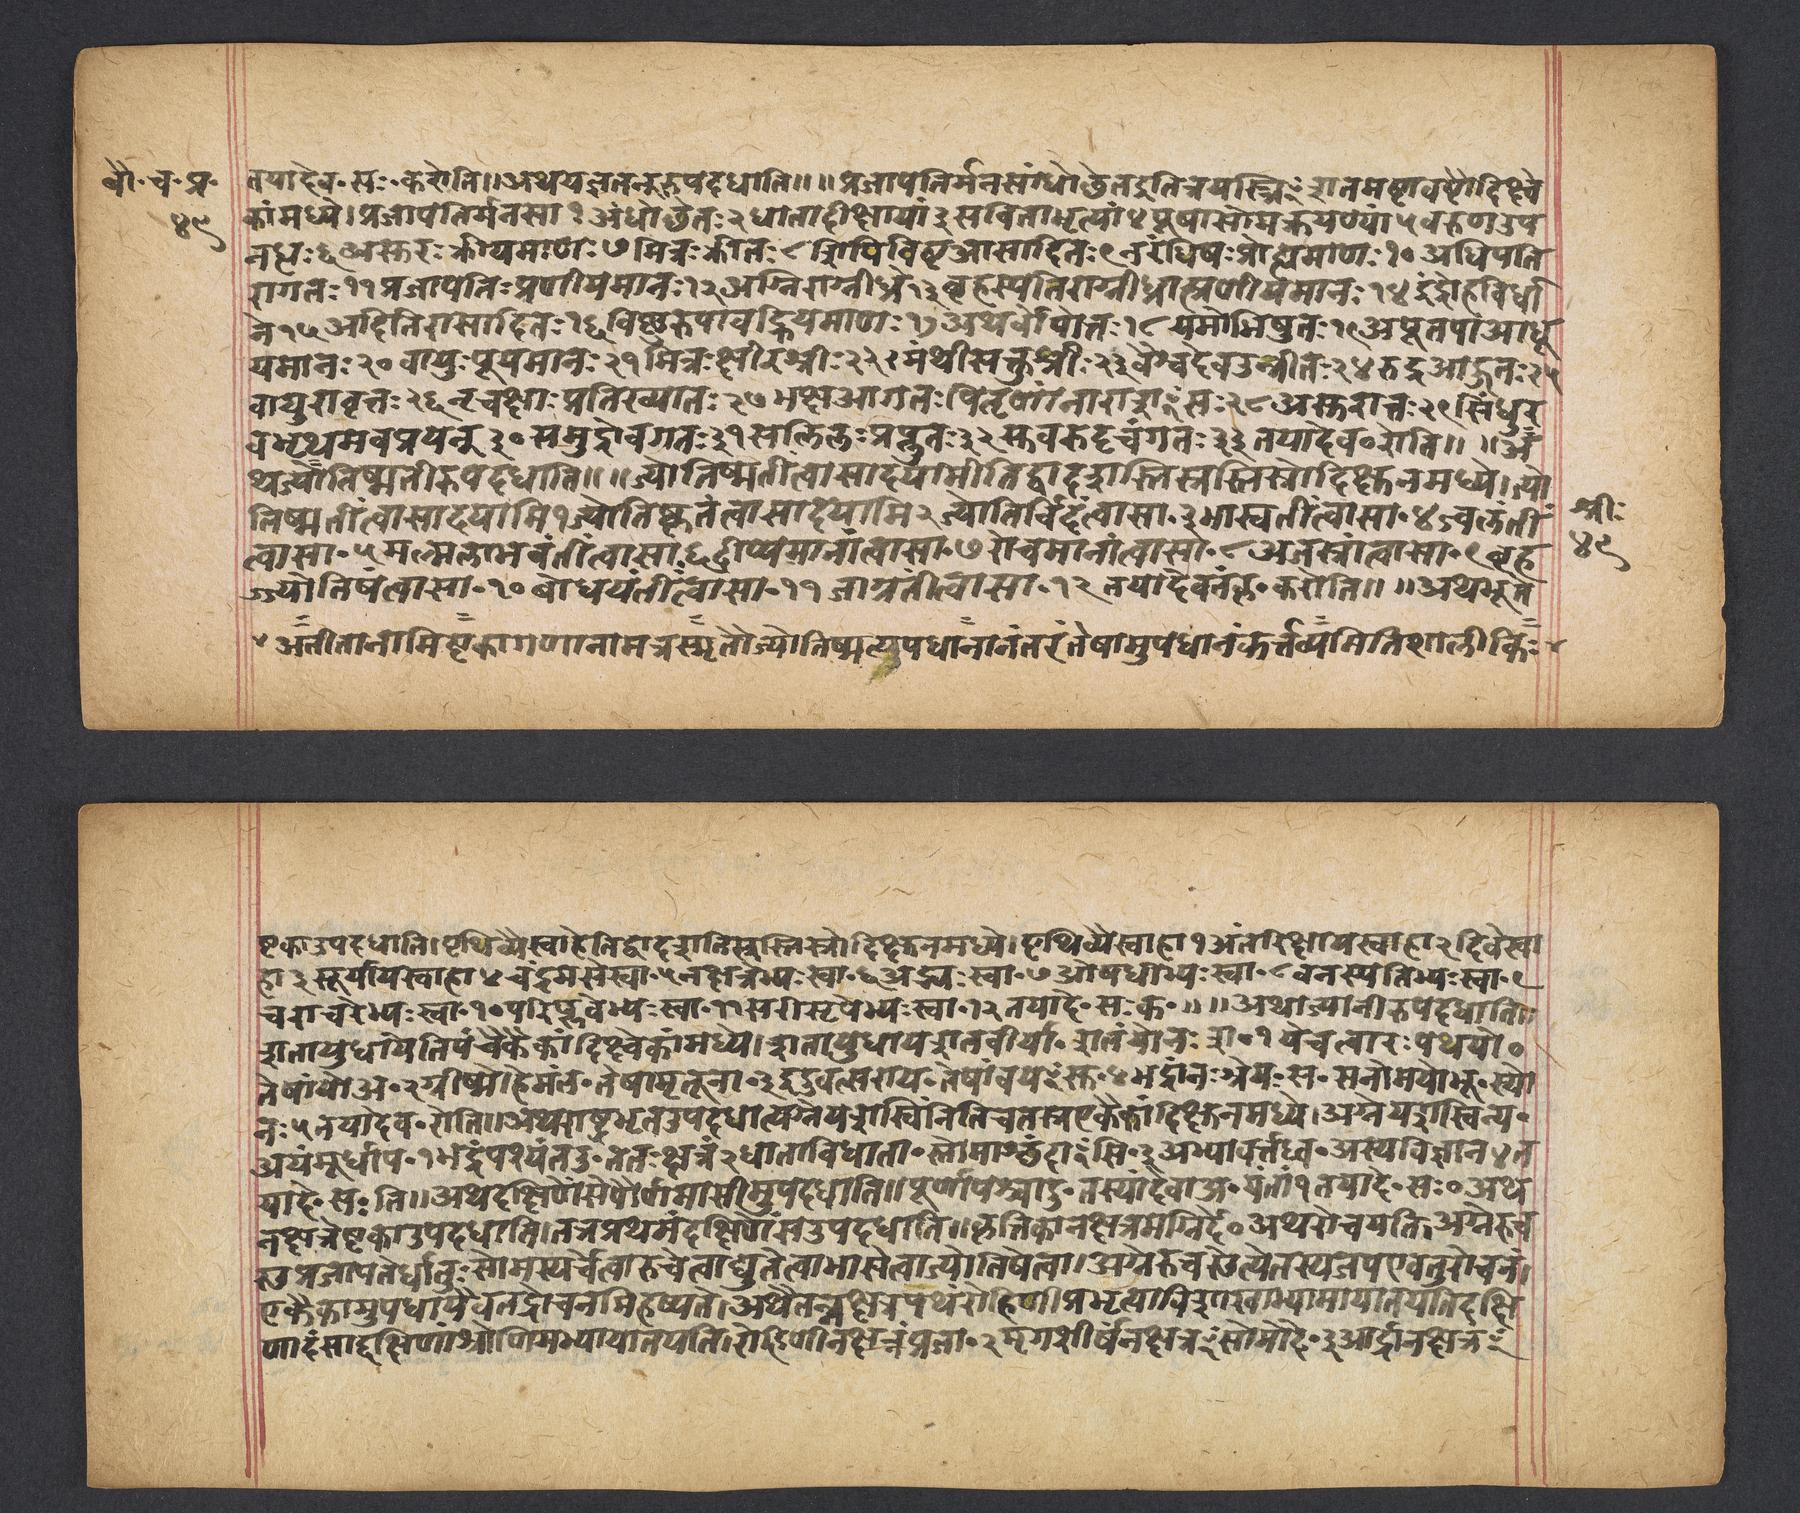 बौ॰ च॰ प्र॰
४९
तयादेव॰ सः॰ करोति॥ अथयज्ञतनूरुपदधाति॥ ॥ प्रजापतिर्मनसांधोछेतइतित्रयस्त्रिꣳशतमष्टावष्टौदिक्ष्वे
कांमध्ये। प्रजापतिर्मनसा १ अंधोछेतः २ धातादीक्षायां ३ सविताभृत्यां ४ पूषासोमक्रयण्यां ५ वरुणउप
नद्धः ६ असुरः क्रीयमाणः ७ मित्रः क्रीतः ८ शिपिविष्टआसादितः ९ नरंधिषः प्रोह्यमाणः १० अधिपति
रागतः ११ प्रजापतिः प्रणीयमानः १२ अग्निराग्नीध्रे १३ बृहस्पतिराग्नीध्रात्प्रणीयमानः १४ इंद्रोहविर्धा
ने १५ अदितिरासादितः १६ विष्णुरुपावह्रियमाणः १७ अथर्वोपोतः १८ यमोभिषुतः १९ अपूतपाआधू
यमानः २० वायुः पूयमानः २१ मित्रः क्षीरश्रीः २२ मंथीसक्तुश्रीः २३ वैश्वदेवउन्नीतः २४ रुद्रआहुतः २५
वायुरावृत्तः २६ नृचक्षाः प्रतिख्यातः २७ भक्षआगतः पितृणांनाराशꣳसः २८ असुरात्तः २९ सिंधुर
वभृथमवप्रयन् ३० समुद्रोवगतः ३१ सलिलः प्रप्लुतः ३२ सुवरुदृचंगतः ३३ तयादेव॰ रोति॥ ॥ अ
थज्योतिष्मतीरुपदधाति॥ ॥ ज्योतिष्मतींत्वासादयामीतिद्वादशतिस्रस्तिस्रोदिक्षुनमध्ये। ज्यो
तिष्मतींत्वासादयामि १ ज्योतिष्कृतंत्वासादयामि २ ज्योतिर्विदंत्वासा॰ ३ भास्वतींत्वासा॰ ४ ज्वलंतीं
त्वासा॰ ५ मल्मलाभवंतींत्वासा॰ ६ दीप्यमानांत्वासा॰ ७ रोचमानांत्वासा॰ ८ अजस्रांत्वासा॰ ९ बृह
ज्ज्योतिषंत्वासा॰ १० बोधयंतींत्वासा॰ ११ जाग्रतींत्वासा॰ १२ तयादेवतंकृ॰ करोति॥ ॥ अथभूते
अतीतानामिष्टकागणानामत्रस्मृतौज्योतिष्मत्युपधानानंतरंतेषामुपधानंकर्तव्यमितिशालीकिः
श्रीः
४९
ष्टकाउपदधाति। पृथिव्यैस्वाहेतिद्वादशतिस्रस्तिस्रोदिक्षुनमध्ये। पृथिव्यैस्वाहा १ अंतरिक्षायस्वाहा २ दिवेस्वा
हा ३ सूर्यायस्वाहा ४ चंद्रमसेस्वा॰ ५ नक्षत्रेभ्यः स्वा॰ ६ अद्भ्यः स्वा॰ ७ ओषधीभ्यः स्वा॰ ८ वनस्पतिभ्यः स्वा॰ ९
चराचरेभ्यः स्वा॰ १० परिप्लवेभ्यः स्वा॰ ११ सरीसृपेभ्यः स्वा॰ १२ तयादे॰ सः क॰ ॥ ॥ अथाज्यानीरुपदधाति॥
शतायुधायेतिपंचैकैकांदिक्ष्वेकांमध्ये। शतायुधायशतवीर्या॰ शतंयोनः श॰ १ येचत्वारः पथयो॰
तेषांयोअ॰ २ ग्रीष्मोहेमंत॰ तेषामृतूना॰ ३ इदुवत्सराय॰ तेषांवयꣳसु॰ ४ भद्रान्नः श्रेयः स॰ सनोमयोभू॰ स्यो
नः ५ तयादेव॰ रोति॥ अथराष्ट्रभृतउपदधात्यग्नेयशस्विन्नितिचतस्रएकैकांदिक्षुनमध्ये। अग्नेयशस्विन्य॰
अयंमूर्धाप॰ १ भद्रंपश्यंतउ॰ ततः क्षत्रं २ धाताविधाता॰ स्तोमाश्छंदाꣳसि॰ ३ अभ्यावर्त्तध्व॰ अस्यविज्ञान ४ त
यादे॰ सः॰ ति॥ अथदक्षिणेंसेपौर्णमासीमुपदधाति॥ पूर्णापश्चादु॰ तस्यांदेवाअ॰ यंतां १ तयादे॰ सः॰ अथ
नक्षत्रेष्टकाउपदधाति। तत्रप्रथमंदक्षिणेंसउपदधाति॥ कृत्तिकानक्षत्रमग्निर्दे॰ अथरोचयति। अग्नेरुच
स्थप्रजापतेर्धातुः सोमस्यर्चेत्वारुचेत्वाद्युतेत्वाभासेत्वाज्योतिषेत्वा। अग्नेरुचस्थेत्येतस्यजपएवतुरोचनं।
एकैकामुपधायैवतद्रोचनमिहष्यते। अथैतन्नक्षत्रपथंरोहिणीप्रभृत्याविशाखाभ्यामायातयतिदक्षि
णादंसाद्दक्षिणांश्रोणिमभ्यायातयति। रोहिणीनक्षत्रंप्रजा॰ २ मृगशीर्षंनक्षत्रꣳसोमोदे॰ ३ आर्द्रानक्षत्रꣳ